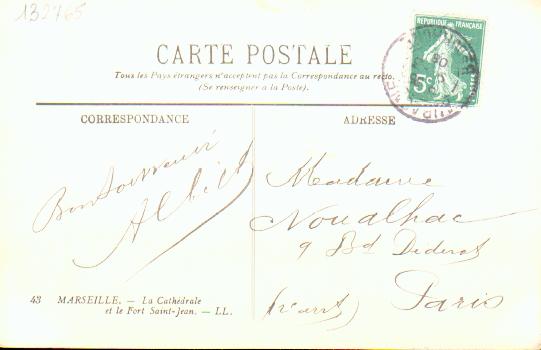 132765
RÉPUBLIQUE FRANÇAISE
5c
POSTES
CARTE POSTALE
Tous les Pays étrangers n'acceptent pas la Correspondance au recto.
(Se renseigner à la Poste).
CORRESPONDANCE
ADRESSE
Bon souvenir
Madame
Noualhac
9 Bd Diderot
Paris
43 MARSEILLE. — La Cathédrale
et le Fort Saint-Jean. — LL.